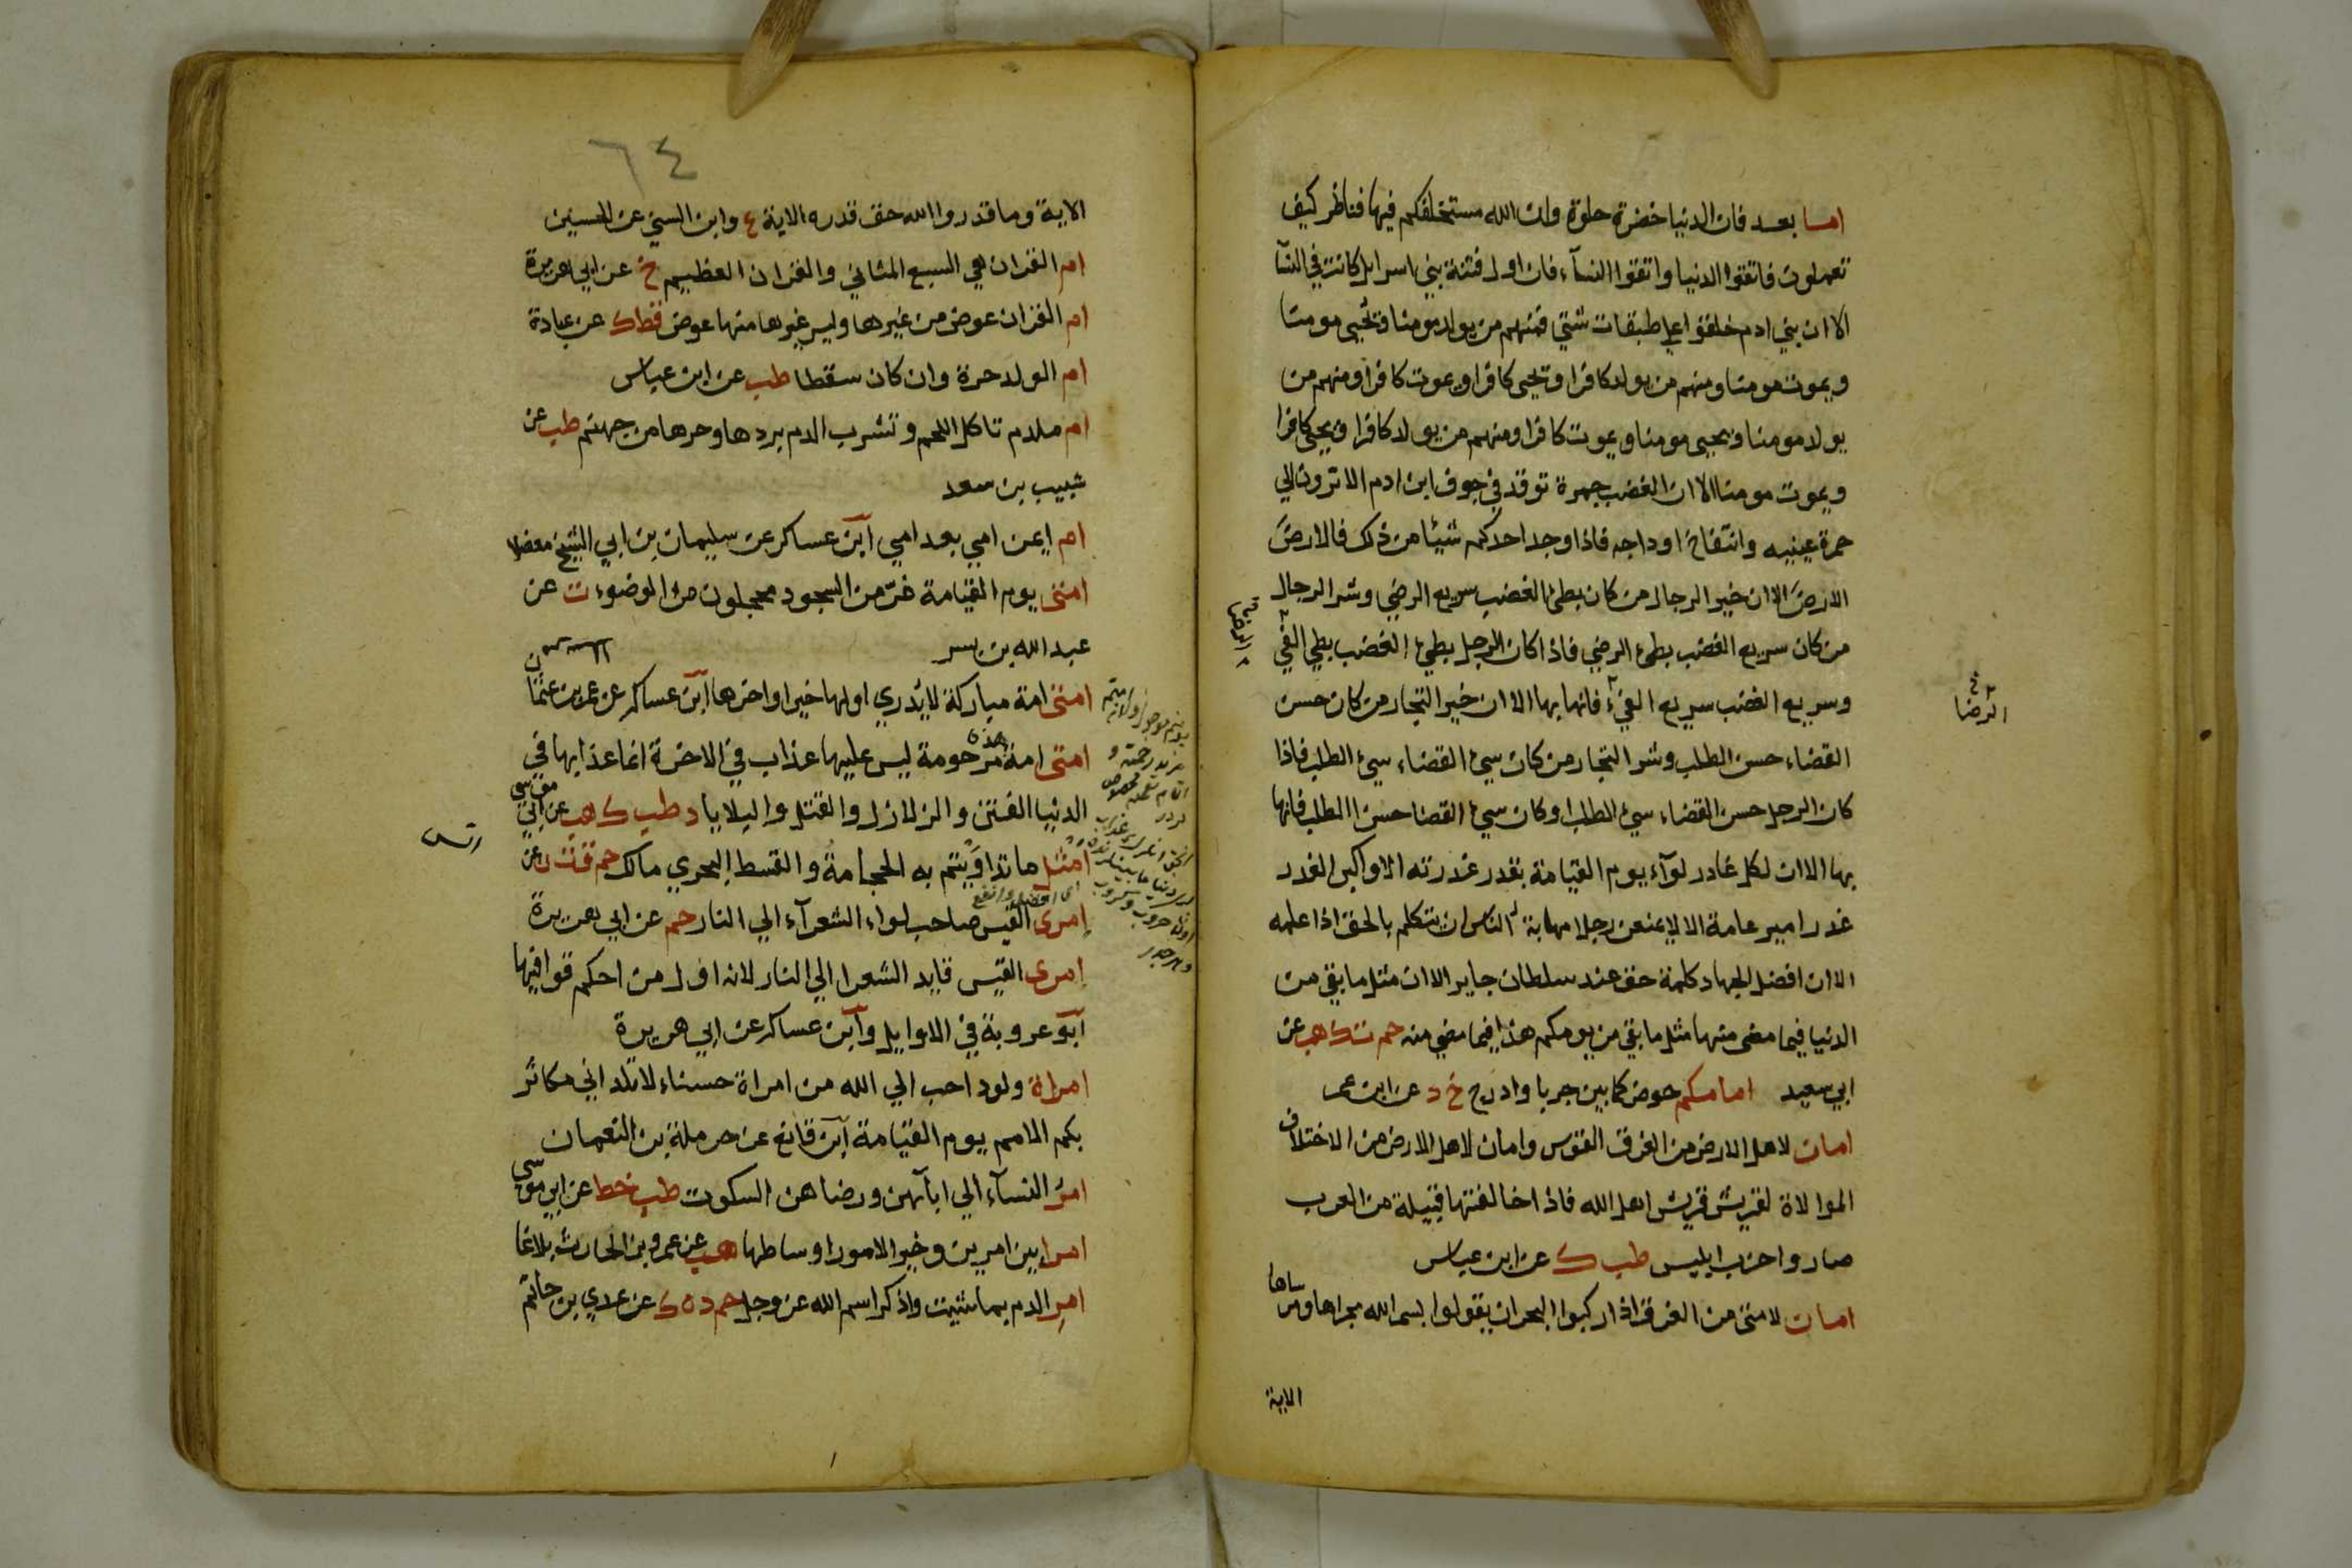 اما بعد فان الدنيا خضرة حلوة وان الله مستخلفكم فيها فناظر كيف
تعملون فاتقوا الدنيا واتقوا النسآء فان اول فتنة بني اسرايل كانت في النسآ
الا ان بني ادم خلقوا على طبقات شتى فمنهم من يولد مومنا وتحيى مومنا
ويموت مومنا ومنهم من يولد كافرا وتحيى كافرا ويموت كافرا ومنهم من
يولد مومنا ويحيى مومنا ويموت كافرا ومنهم من يولد كافرا ويحيى كافرا
ويموت مومنا الا ان الغضب جمرة توقد في جوف ابن ادم الا ترون الي
حمرة عينيه وانتفاخ اوداجه فاذا وجد احدكم شيئا من ذلك فالارض
الارض الا ان خير الرجال من كان بطئ الغضب سريع الرضي وشر الرجال
من كان سريع الغضب بطئ الرضي فاذا كان الرجل بطيئ الغضب بطي الفي
وسريع الغضب سريع الفيء فانها بها الا ان خير التجار من كان حسن
الرضا
القضاء حسن الطلب وشر التجار من كان سيئ القضاء سيئ الطلب فاذا
كان الرجل حسن القضاء سيئ الطلب او كان سيئ القضا حسن الطلب فانها
بها الا ان لكل غادر لوآء يوم القيامة بقدر غدرته الا واكبر الغدر
غدر امير عامة الا لا يمنعن رجلا مهابة الناس ان يتكلم بالحق اذا علمه
الا ان افضل الجهاد كلمة حق عند سلطان جاير الا ان مثل ما بقي من
الدنيا فيما مضى منها مثل ما بقي من يومكم هذا فيما مضي منه حم ت ك هب عن
ابي سعيد امامكم حوض كما بين جربا واذرح خ د عن ابن عمر
امان لاهل الارض من الغرق القوس وامان لاهل الارض من الاختلاف
الموالاة لقريش قريش اهل الله فاذا خالفتها قبيلة من العرب
صاروا حزب ابليس طب ك عن ابن عباس
امان لامتى من الغرق اذا ركبوا البحر ان يقولوا بسم الله مجراها ومرساها
الاية
٦٤
الاية وما قدروا الله حق قدره الاية ع وابن السني عن الحسين
ام القران هي السبع المثاني والقران العظيم خ عن ابي هريرة
ام القران عوض من غيرها وليس غيرها منها عوض قط ك عن عبادة
ام الولد حرة وان كان سقطا طب عن ابن عباس
ام ملدم تاكل اللحم وتشرب الدم بردها وحرها من جهنم طب عن
شبيب بن سعد
ام ايمن امي بعد امي ابن عساكر عن سليمان بن ابي الشيخ معضلا
امتى يوم القيامة غر من السجود محجلون من الوضوء ت عن
عبد الله بن بسر
امتى امة مباركة لا يدري اولها خير او اخرها ابن عساكر عن عمر بن عثمان
امتى امة هذه مرحومة ليس عليها عذاب في الاخرة انما عذابها في
الدنيا الفتن والزلازل والقتل والبلايا د طب ك هب عن ابي موسى
امثل ما تداويتم به الحجامة والقسط البحري مالك حم ق ت ن عن
انس
اى افضل وانفع
امرى القيس صاحب لواء الشعرآء الي النار حم عن ابي هريرة
امرى القيس قايد الشعرا الي النار لانه اول من احكم قوافيها
ابو عروبة في الاوايل وابن عساكر عن ابي هريرة
امراة ولود احب الي الله من امراة حسناء لا تلد اني مكاثر
بكم الامم يوم القيامة ابن قانع عن حرملة بن النعمان
امر النسآء الي ابآئهن ورضاهن السكوت طب خط عن ابي موسى
امرا بين امرين وخير الامور اوساطها هب عن عمرو بن الحارث بلاغا
امر الدم بما شئت واذكر اسم الله عز وجل حم د ه ك عن عدي بن حاتم